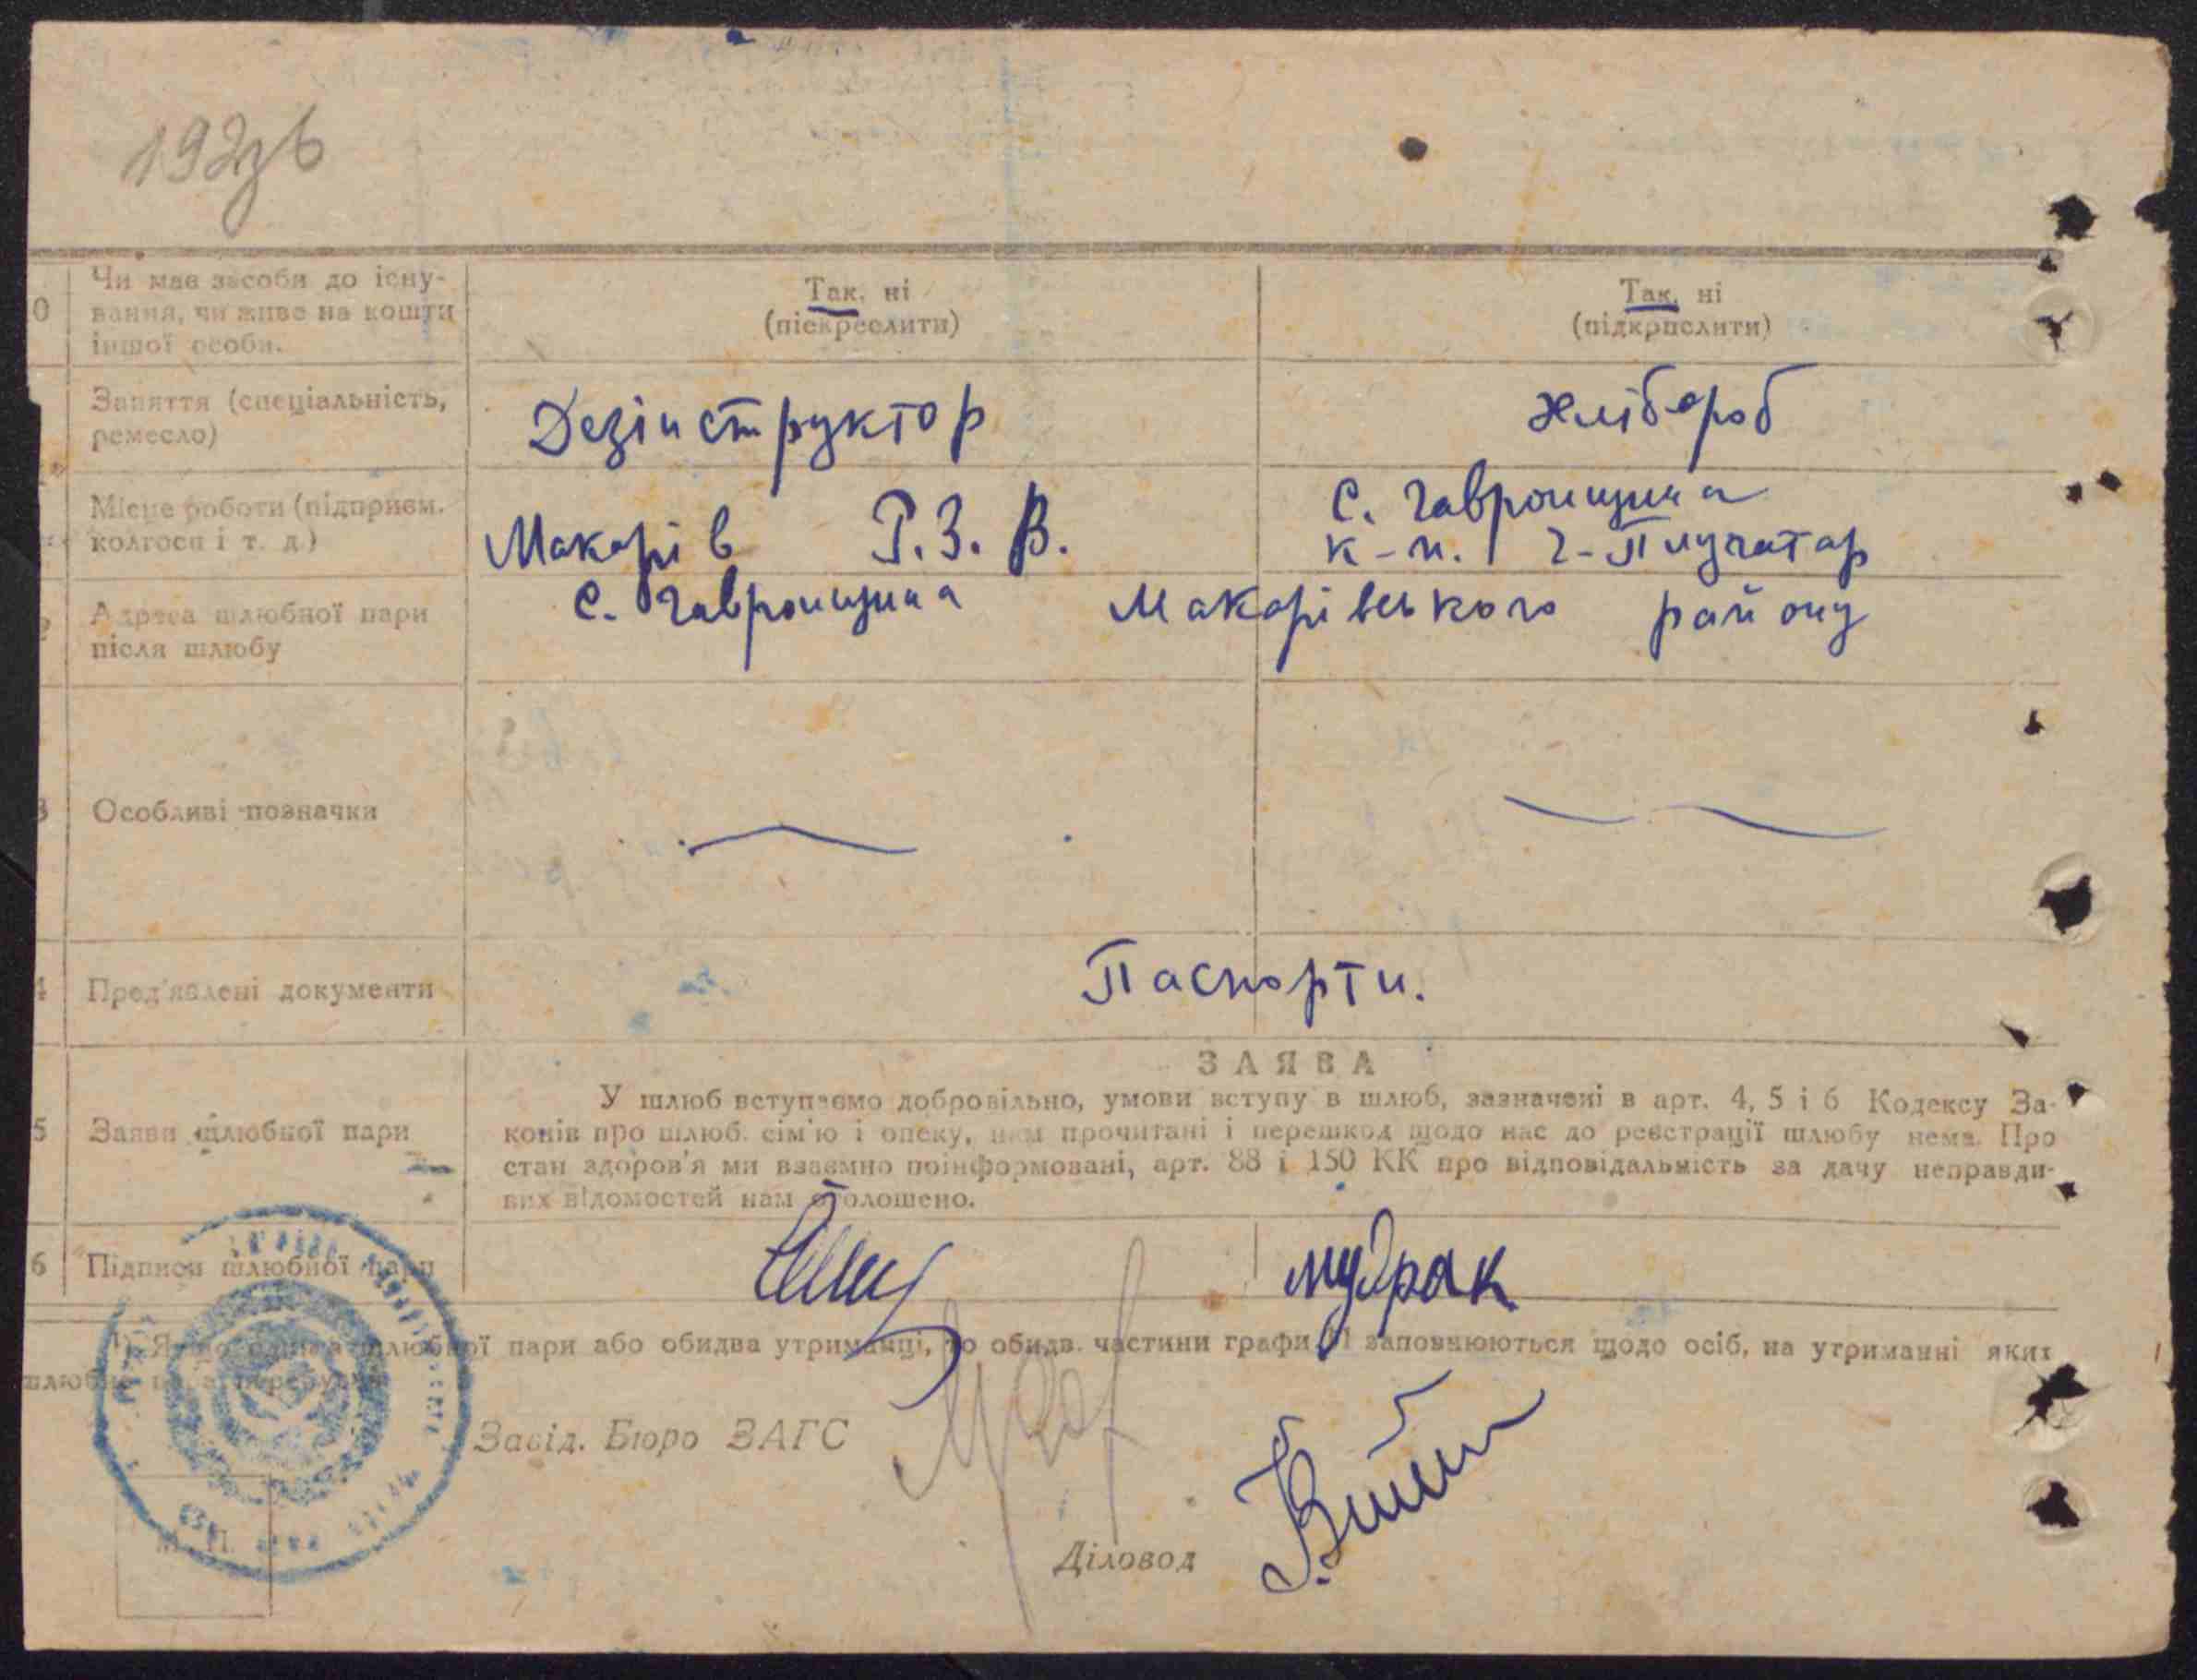 192зв
0 Чи має засоби до існу-
вання, чи живе на кошти
іншої особи.
Так, ні
(пієкреслити)
Так, ні
(підкрпслити)
Заняття (спеціальність,
ремесло)
Дезінструктор
Хлібороб
Місце роботи (підприєм.
колгосп і т. д.)
Макарів Р.З.В.
С. Гавронщина
к-п.
Адреса шлюбної пари
після шлюбу
с. Гавронщина Макарівського району
3 Особливі позначки
4 Пред'явлені документи
Паспорти.
ЗАЯВА
5 Заяви шлюбної пари
У шлюб вступаємо добровільно, умови вступу в шлюб, зазначені в арт. 4, 5 і 6 Кодексу За-
конів про шлюб. сім'ю і опеку, нам прочитані і перешкод щодо нас до реєстрації шлюбу нема. Про
стан здоров'я ми взаємно поінформовані, арт. 88 і 150 КК про відповідальність за дачу неправди-
вих відомостей нам оголошено.
6 Підписи шлюбної пари
мудрак
1) Якщо шлюбної пари або обидва утриманці, то обидв. частини графи 11 заповнюються щодо осіб, на утриманні яких
Завід. Бюро ЗАГС
М. П.
Діловод